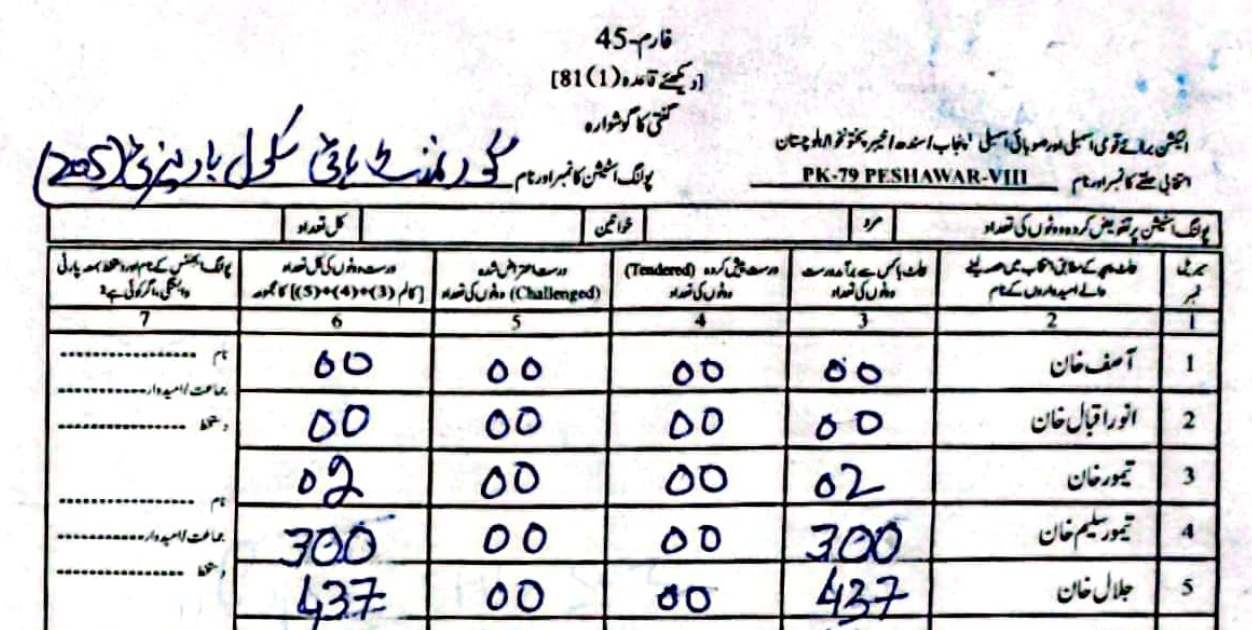 فارم-45
[دیکھئے قاعدہ 81(1)]
گنتی کا گوشوارہ
الیکشن برائے قومی اسمبلی اور صوبائی اسمبلی پنجاب/سندھ/خیبر پختونخوا/بلوچستان
انتخابی حلقے کا نمبر اور نام PK-79 PESHAWAR-VIII پولنگ اسٹیشن کا نمبر اور نام گورنمنٹ ہائی سکول (205)
پولنگ اسٹیشن پر تفویض کردہ ووٹوں کی تعداد مرد خواتین کل تعداد
سیریل نمبر
بیلٹ پیپر کے مطابق انتخاب میں حصہ لینے والے امیدواروں کے نام
بیلٹ باکس سے برآمد درست ووٹوں کی تعداد
درست پیش کردہ (Tendered) ووٹوں کی تعداد
درست اعتراض شدہ (Challenged) ووٹوں کی تعداد
درست ووٹوں کی کل تعداد [کالم (3)+(4)+(5) کا مجموعہ]
پولنگ ایجنٹس کے نام اور دستخط بمعہ پارٹی وابستگی، اگر کوئی ہے؟
1 2 3 4 5 6 7
1 آصف خان 00 00 00 00 نام
جماعت/امیدوار
2 انور اقبال خان 00 00 00 00 دستخط
3 تیمور خان 02 00 00 02 نام
4 تیمور سلیم خان 300 00 00 300 جماعت/امیدوار
5 جلال خان 437 00 00 437 دستخط